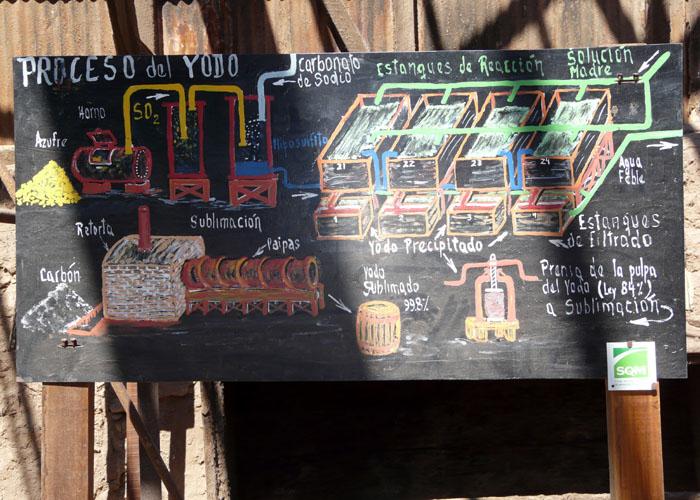 PROCESO del YODO
Carbonato
de Sodio
Estanques de Reacción
Solución
Madre
Horno
SO₂
Azufre
Agua
Feble
21
22
23
24
Retorta
Sublimación
Paipas
1
2
3
4
Yodo Precipitado
Estanques
de Filtrado
Carbón
Yodo
Sublimado
99.8%
Prensa de la pulpa
del Yodo (Ley 84%)
a Sublimación
SQM